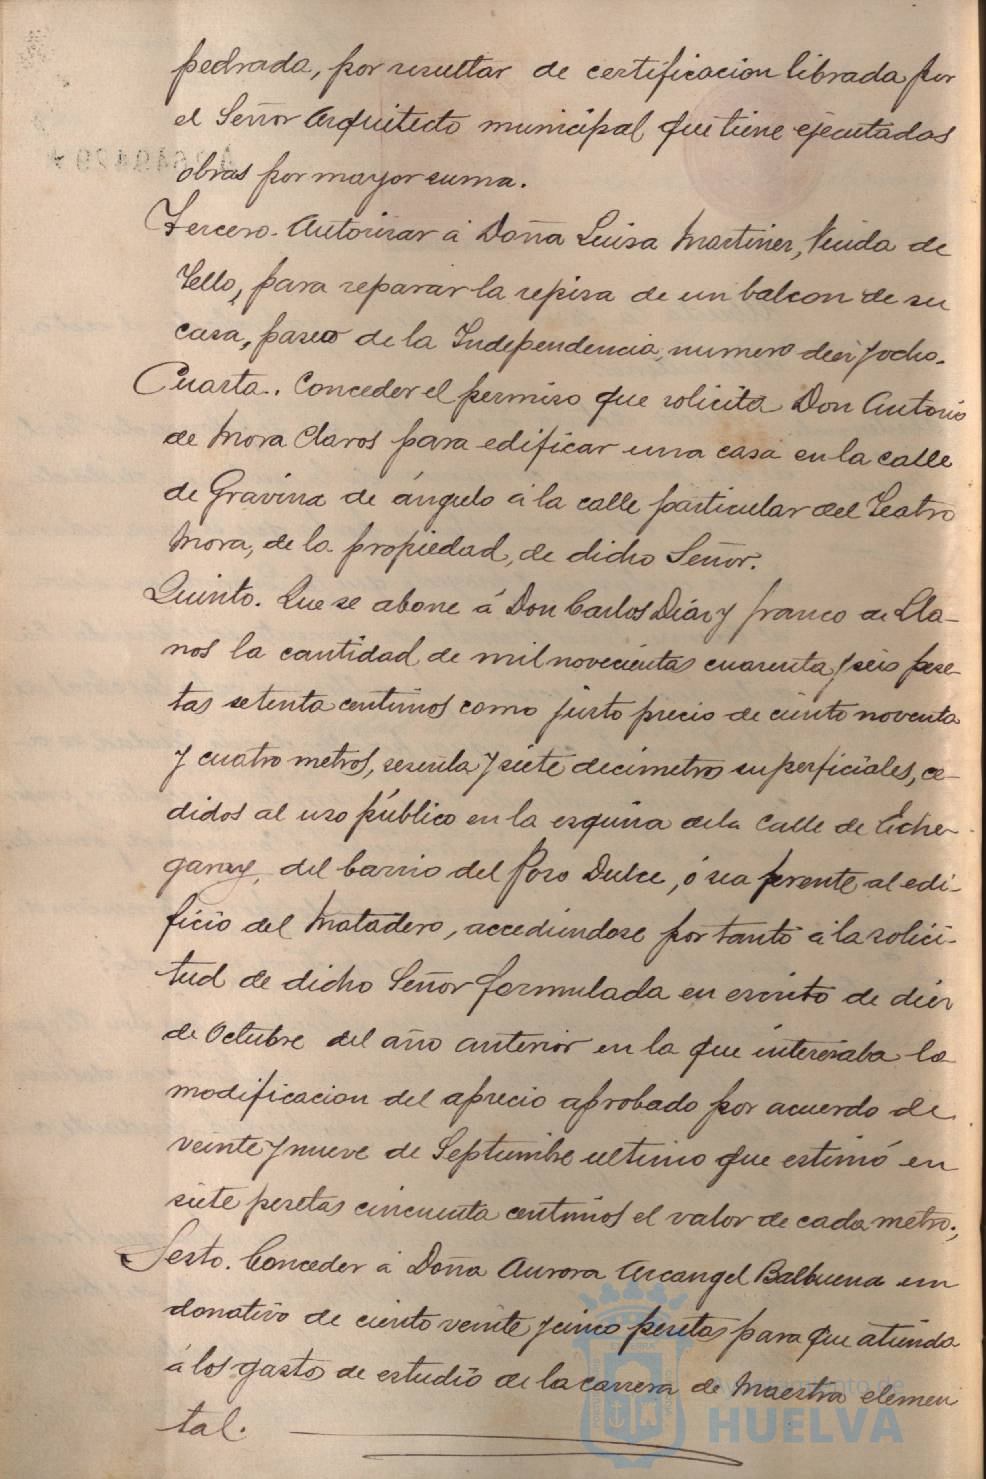 pedrada, por resultar de certificacion librada por
el Señor Arquitecto municipal que tiene ejecutadas
obras por mayor suma.
Tercero. Autorizar á Doña Luisa Martinez, Viuda de
Tello, para reparar la repisa de un balcon de su
casa, paseo de la Independencia, numero diez y ocho.
Cuarta. Conceder el permiso que solicita Don Antonio
de Mora Claros para edificar una casa en la calle
de Gravina de ángulo á la calle particular del Teatro
Mora, de la propiedad, de dicho Señor.
Quinto. Que se abone á Don Carlos Diaz y Franco de Lla-
nos la cantidad de mil novecientas cuarenta y seis pese-
tas setenta centimos como justo precio de ciento noventa
y cuatro metros, sesenta y siete decimetros superficiales, ce-
didos al uso público en la esquina de la Calle de Eche-
garay, del barrio del Pozo Dulce, ó sea frente al edi-
ficio del Matadero, accediendose por tanto á la solici-
tud de dicho Señor formulada en escrito de diez
de Octubre del año anterior en la que interesaba la
modificacion del aprecio aprobado por acuerdo de
veinte y nueve de Septiembre ultimo que estimó en
siete pesetas cincuenta centimos el valor de cada metro;
Sesto. Conceder á Doña Aurora Arcangel Balbuena un
donativo de ciento veinte y cinco pesetas para que atienda
á los gastos de estudio de la carrera de Maestra elemen
tal.
Ayuntamiento de
HUELVA